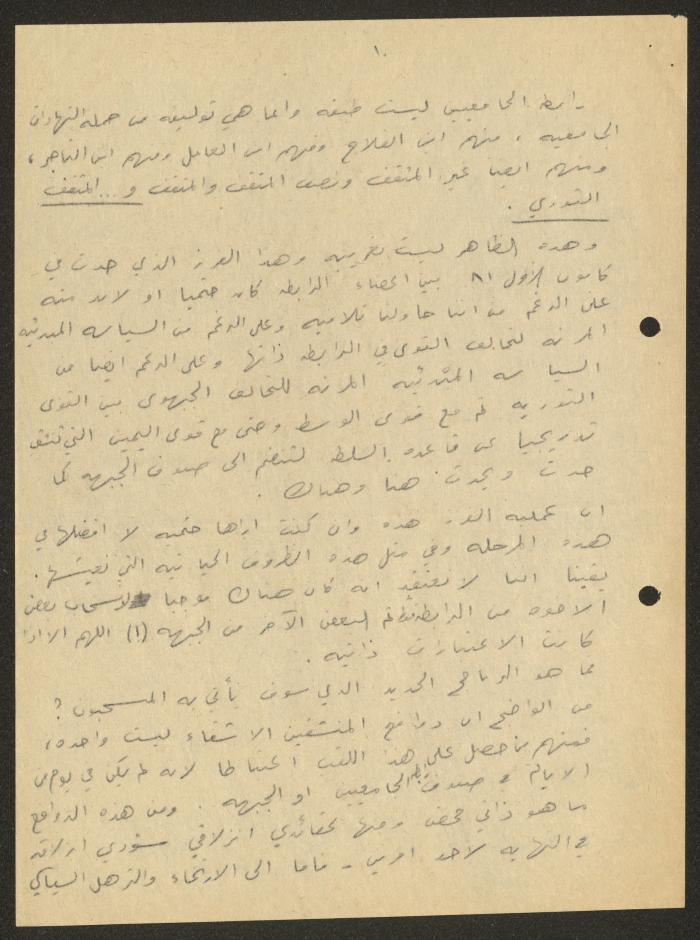 ١٠
رابطة الجامعيين ليست طبقة وانما هي توليفه من حملة الشهادات
الجامعيه ، منهم ابن الفلاح ومنهم ابن العامل ومنهم ابن التاجر ،
ومنهم ايضا غير المثقف ونصف المثقف والمثقف و ... المثقف
الثوري .
وهذه الظاهر ليست غريبه وهذا الفرز الذي حدث في
كانون الأول ٨١ بين اعضاء الرابطه كان حتميا او لا بد منه
على الرغم من اننا حاولنا تلافيه وعلى الرغم من السياسه المبدئيه
المرنه لتحالف القوى في الرابطه ذاتها وعلى الرغم ايضا من
السياسه المبدئيه المرنه للتحالف الجبهوي بين القوى
الثوريه ثم مع قوى الوسط وحتى مع قوى اليمين التي تنشق
تدريجيا عن قاعده السلطه لتنضم الى صفوف الجبهه كما
حدث ويحدث هنا وهناك .
ان عمليه الفرز هذه وان كنت اراها حتميه لا افضلها في
هذه المرحله وفي مثل هذه الظروف الحياتيه التي نعيشها .
يقينا اننا لا نعتقد انه كان هناك موجبا لانسحاب بعض
الاخوه من الرابطه ثم البعض الآخر من الجبهه (١) اللهم الا اذا
كانت الاعتبارات ذاتيه .
فما هو البرنامج الجديد الذي سوف يأتي به المنسحبون ؟
من الواضح ان دوافع المنشقين الاشقاء ليست واحده ،
فمنهم من حصل على هذا اللقب اعتباطا لانه لم يكن في يوم من
الايام في صفوف الجامعيين او الجبهه . ومن هذه الدوافع
ما هو ذاتي محض ومنها عقائدي انزلاقي سيؤدي
في النهايه لاحد امرين - فاما الى الارتخاء والترهل السياسي